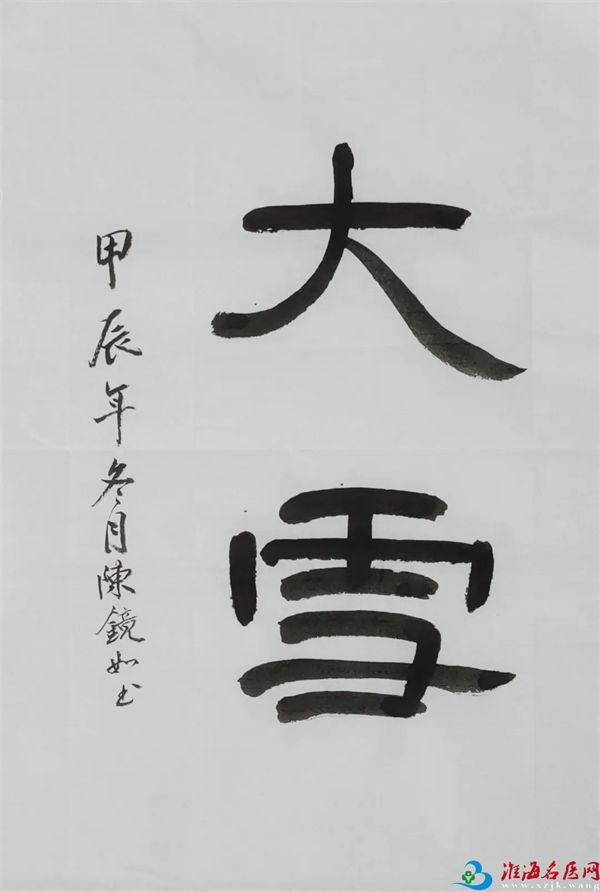 大雪
甲辰年冬月陳鏡如书
淮海名医网
www.xzjk.wang